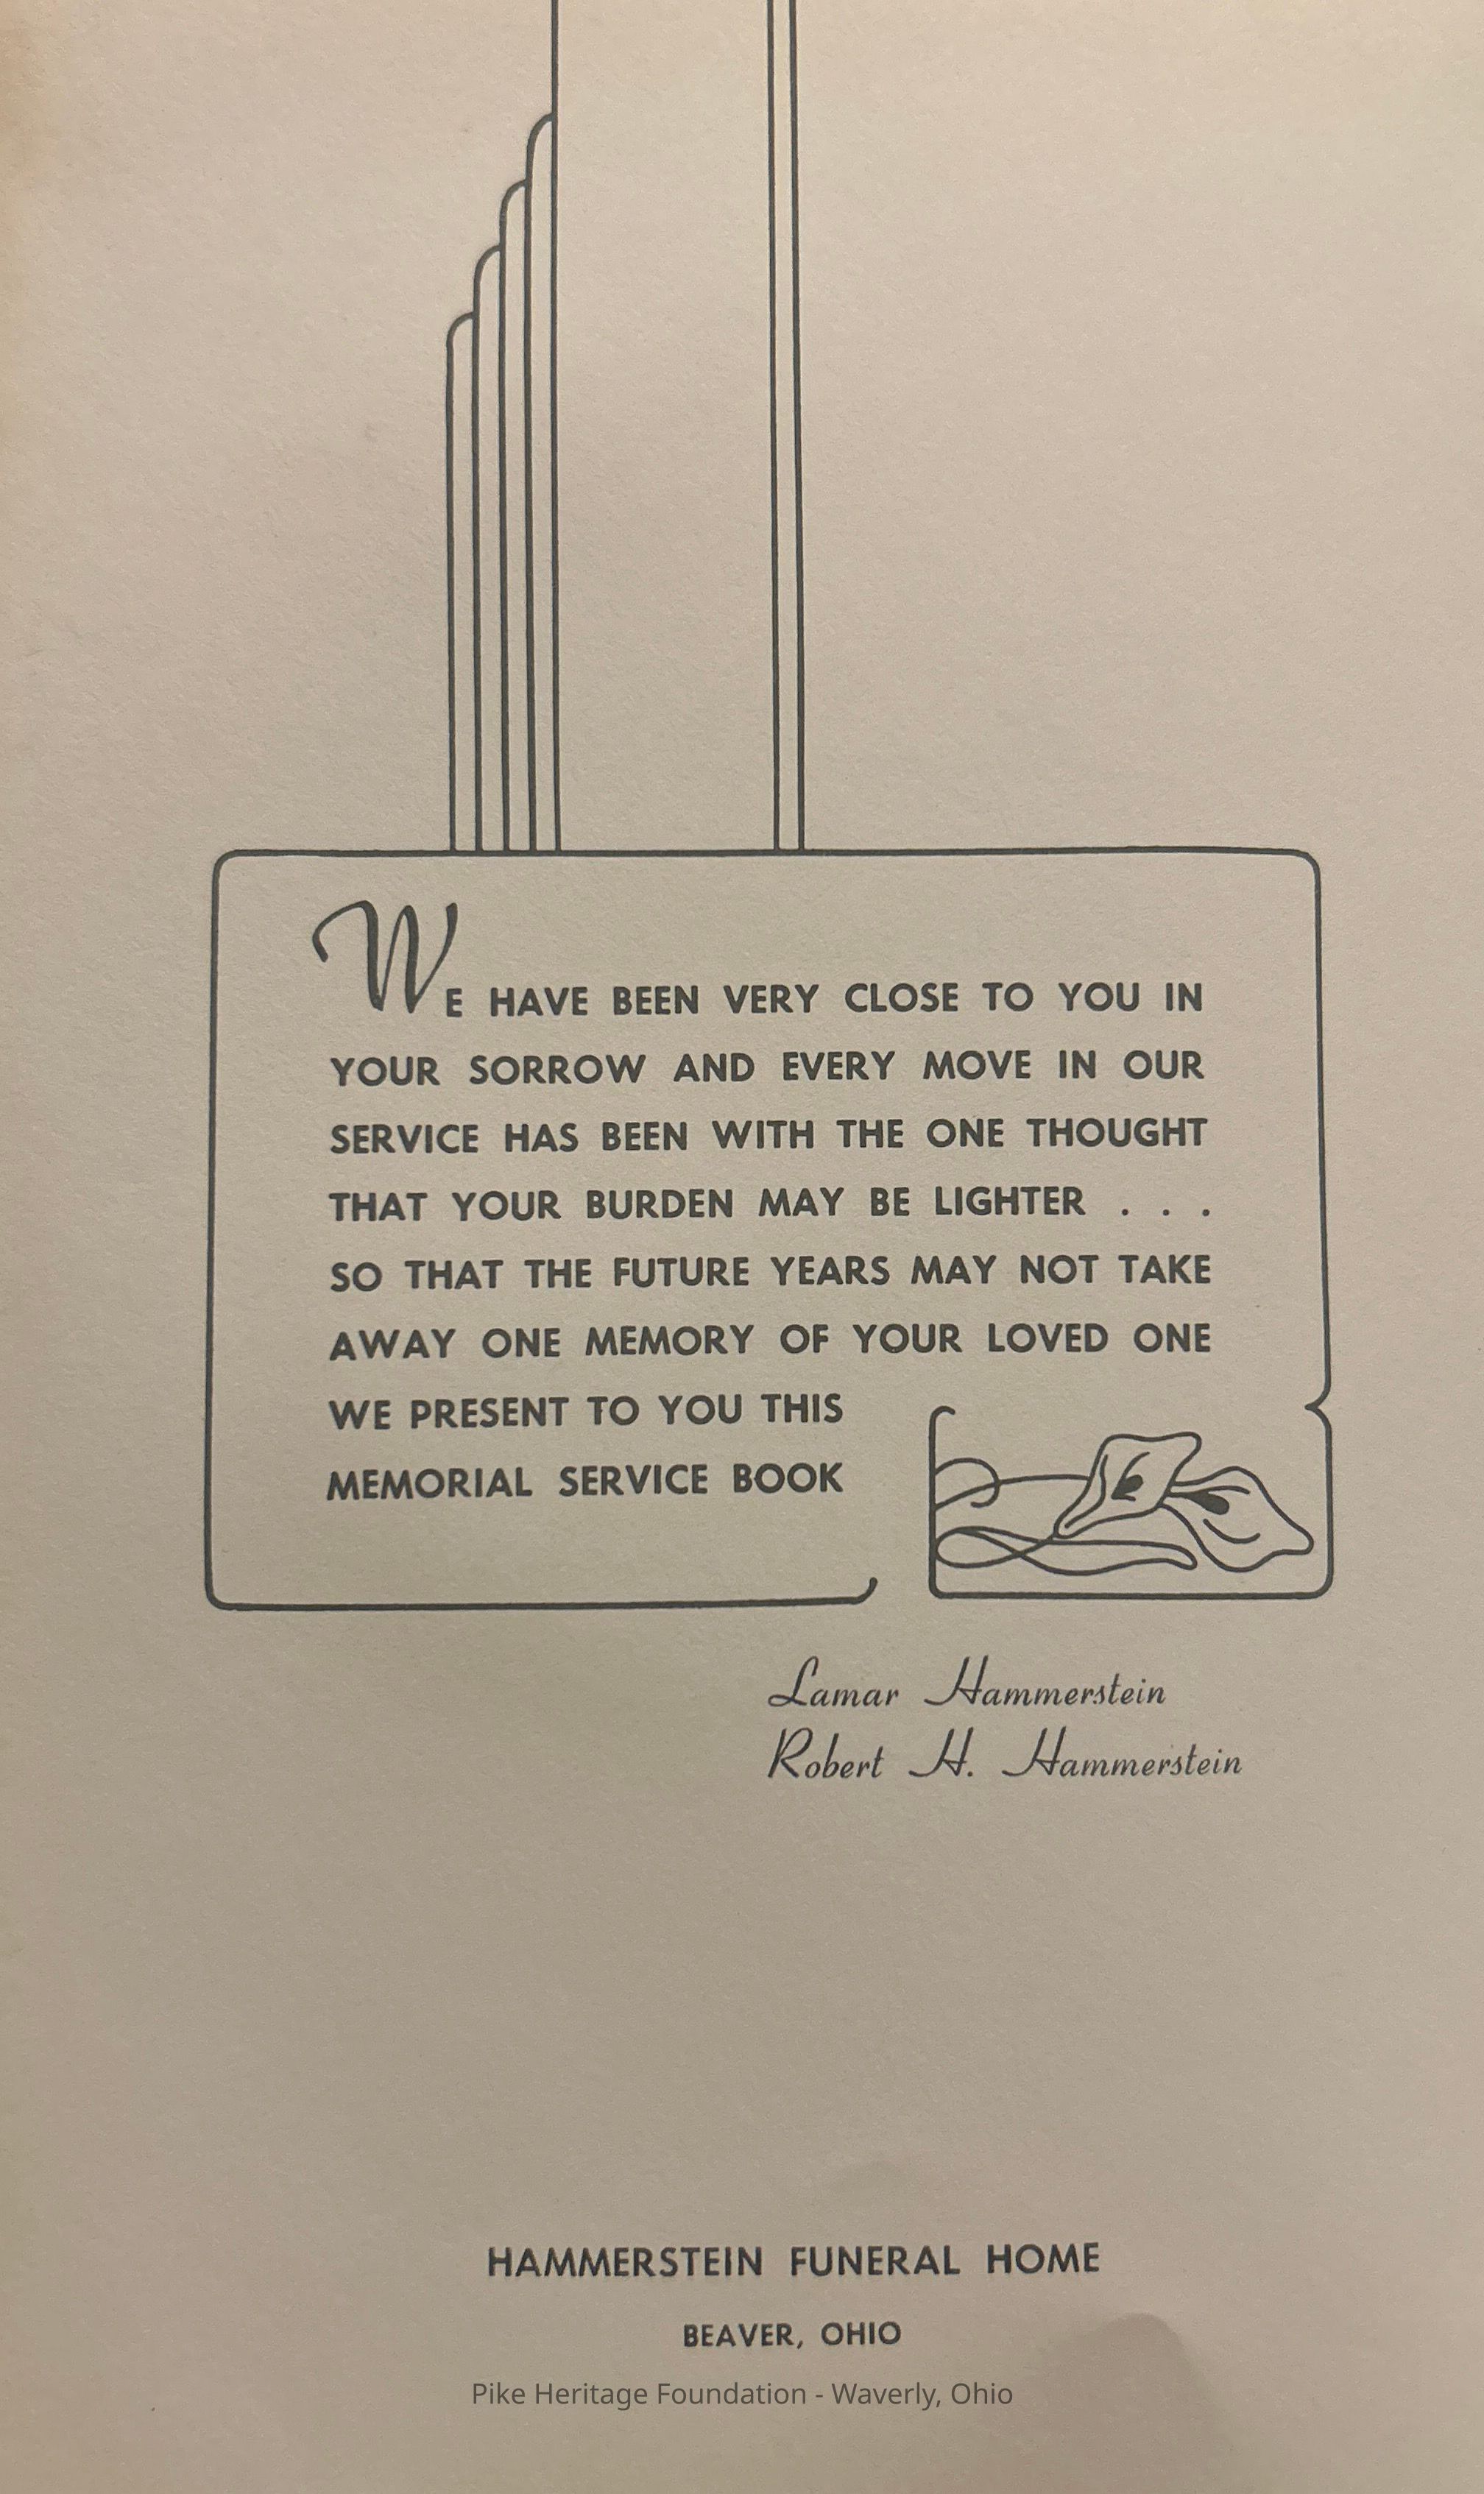 WE HAVE BEEN VERY CLOSE TO YOU IN
YOUR SORROW AND EVERY MOVE IN OUR
SERVICE HAS BEEN WITH THE ONE THOUGHT
THAT YOUR BURDEN MAY BE LIGHTER . . .
SO THAT THE FUTURE YEARS MAY NOT TAKE
AWAY ONE MEMORY OF YOUR LOVED ONE
WE PRESENT TO YOU THIS
MEMORIAL SERVICE BOOK
Lamar Hammerstein
Robert H. Hammerstein
HAMMERSTEIN FUNERAL HOME
BEAVER, OHIO
Pike Heritage Foundation - Waverly, Ohio